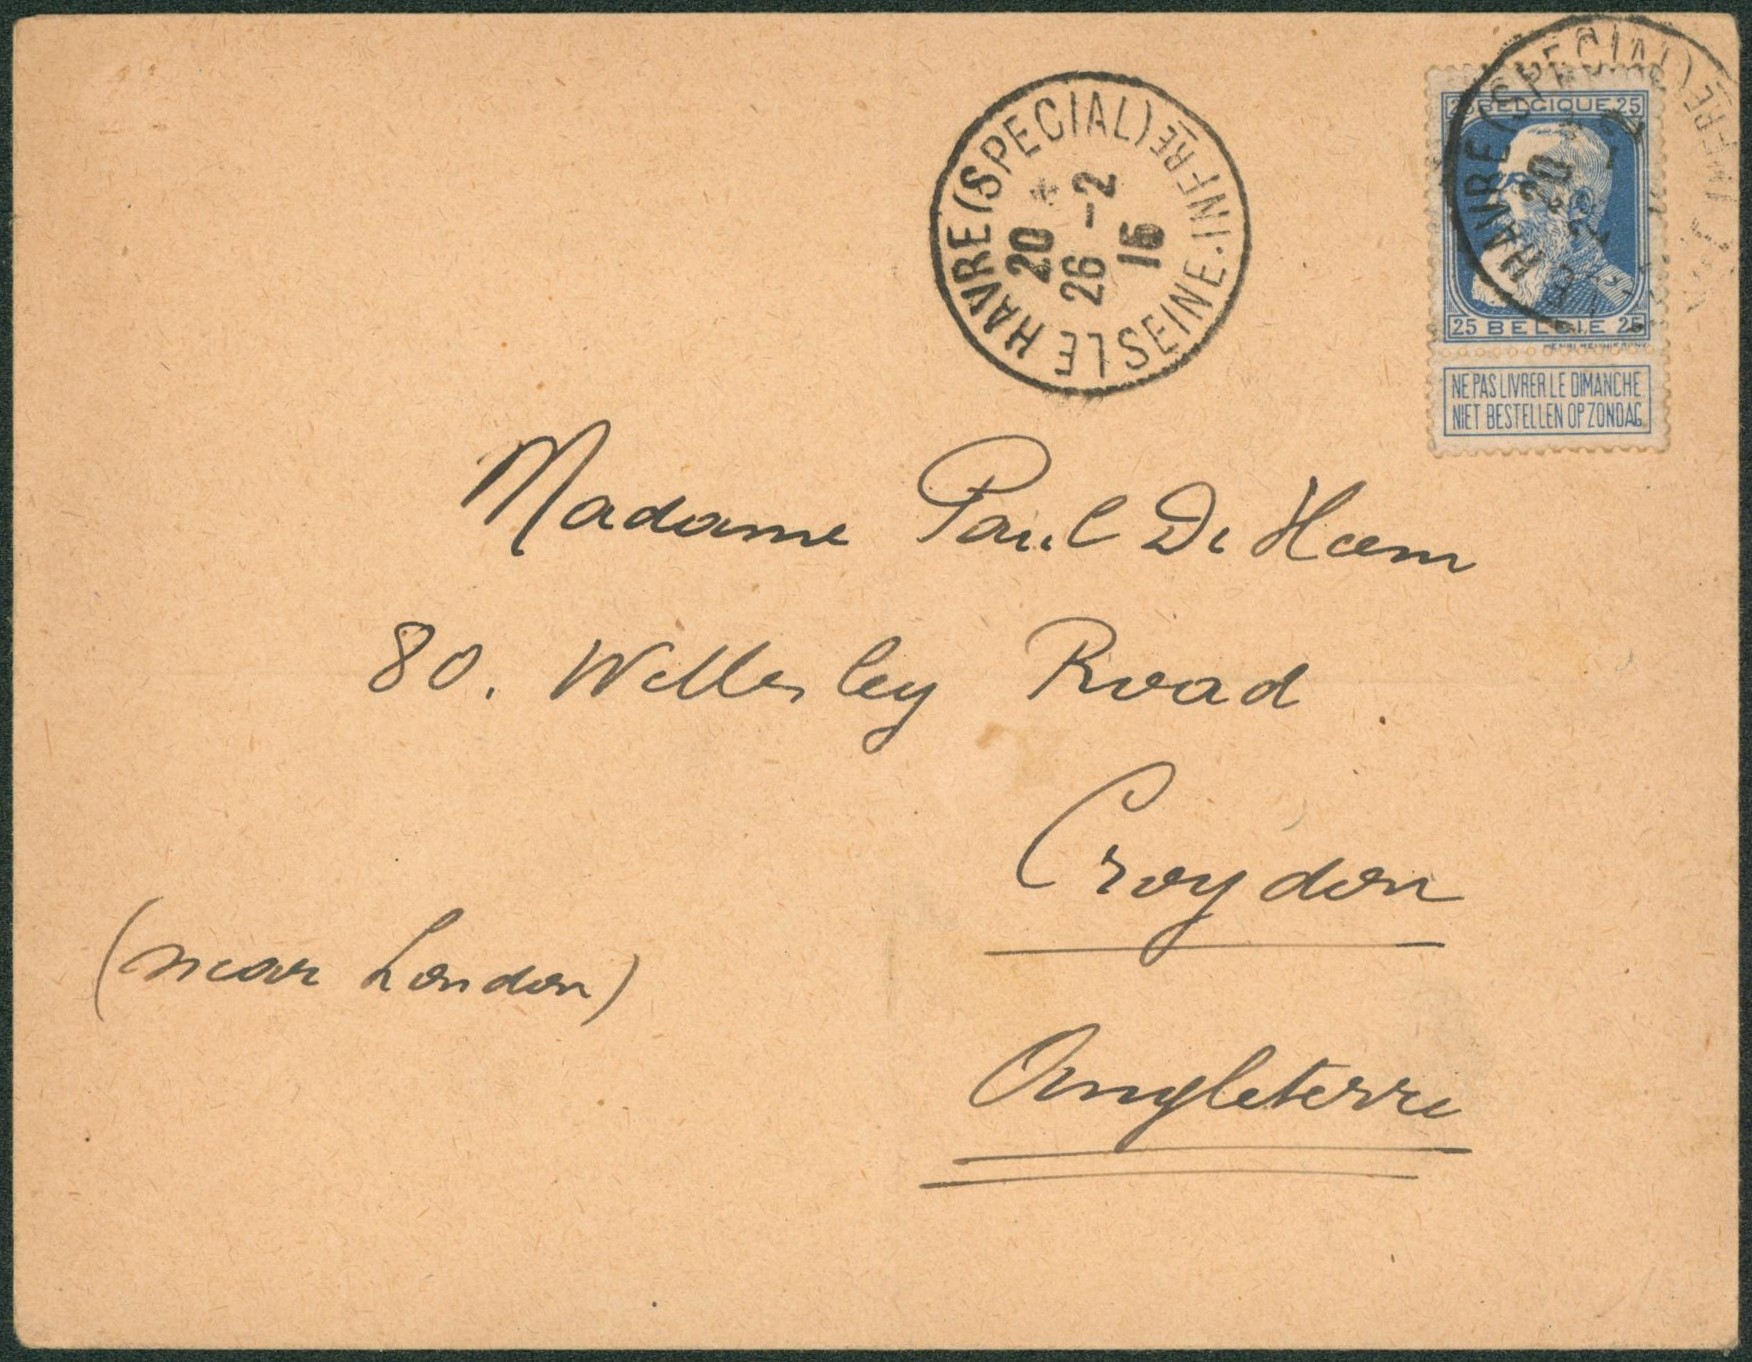 LE HAVRE (SPECIAL) SEINE-INFRE
20 *
26 -2
15
LE HAVRE (SPECIAL)
20
25 BELGIQUE 25
25 BELGIE 25
NE PAS LIVRER LE DIMANCHE
NIET BESTELLEN OP ZONDAG
Madame Paul De Haem
80. Wellesley Road
Croydon
(near London)
Angleterre